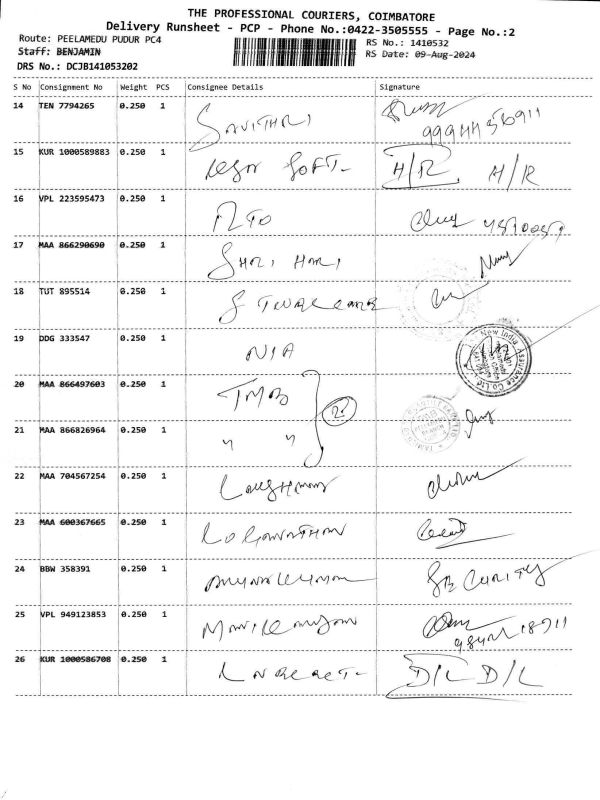 THE PROFESSIONAL COURIERS, COIMBATORE
Delivery Runsheet - PCP - Phone No.:0422-3505555 - Page No.:2
Route: PEELAMEDU PUDUR PC4
RS No.: 1410532
Staff: BENJAMIN
RS Date: 09-Aug-2024
DRS No.: DCJB141053202
S No Consignment No Weight PCS Consignee Details Signature
14 TEN 7794265 0.250 1 SAVITHRI
15 KUR 1000589883 0.250 1 SOFT- H/R, H/R
16 VPL 223595473 0.250 1 RTO
17 MAA 866290690 0.250 1 SHRI HARI
18 TUT 895514 0.250 1
19 DDG 333547 0.250 1 NIA New India Assurance Co.Ltd
20 MAA 866497603 0.250 1 TMB 2
21 MAA 866826964 0.250 1 " "
22 MAA 704567254 0.250 1
23 MAA 600367665 0.250 1 LOGANATHAN
24 BBW 358391 0.250 1 SECURITY
25 VPL 949123853 0.250 1
26 KUR 1000586708 0.250 1 D/L D/L